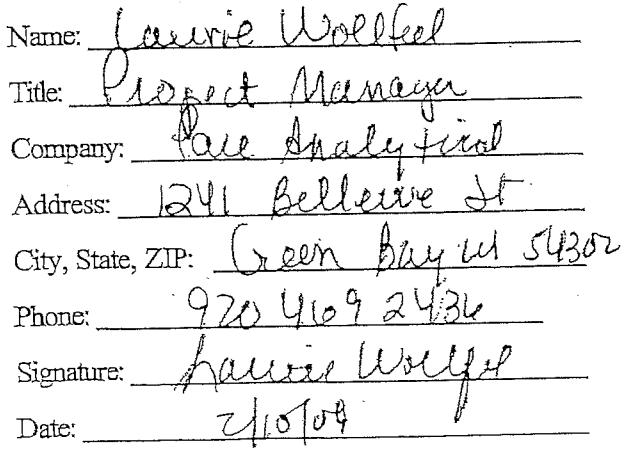 Name: Laurie Woelfel
Title: Project Manager
Company: Pace Analytical
Address: 1241 Bellevue St
City, State, ZIP: Green Bay WI 54302
Phone: 920 469 2436
Signature: Laurie Woelfel
Date: 2/10/09